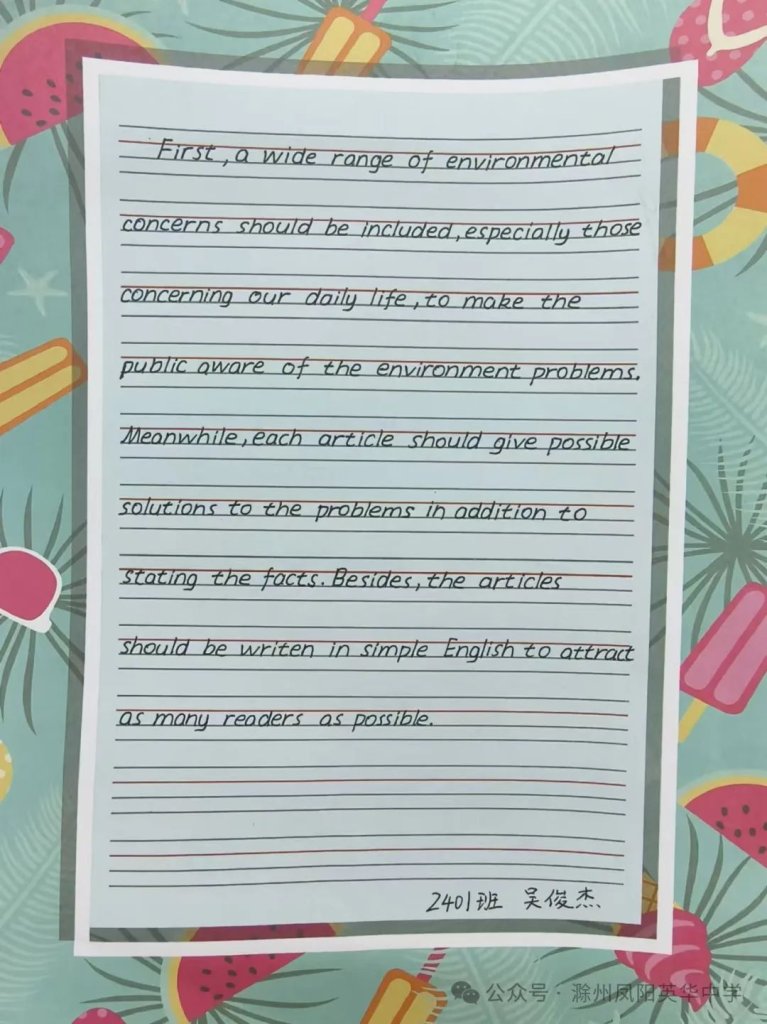 First, a wide range of environmental
concerns should be included, especially those
concerning our daily life, to make the
public aware of the environment problems.
Meanwhile, each article should give possible
solutions to the problems in addition to
stating the facts. Besides, the articles
should be writen in simple English to attract
as many readers as possible.
2401班 吴俊杰
公众号·滁州凤阳英华中学